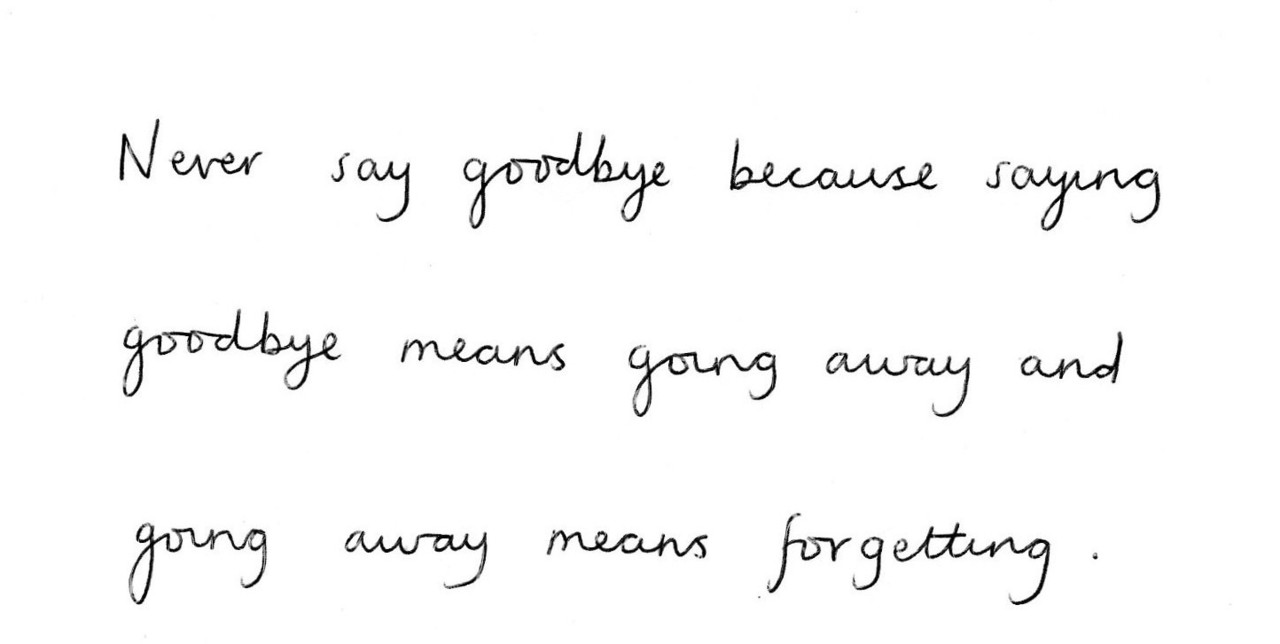 Never say goodbye because saying
goodbye means going away and
going away means forgetting.